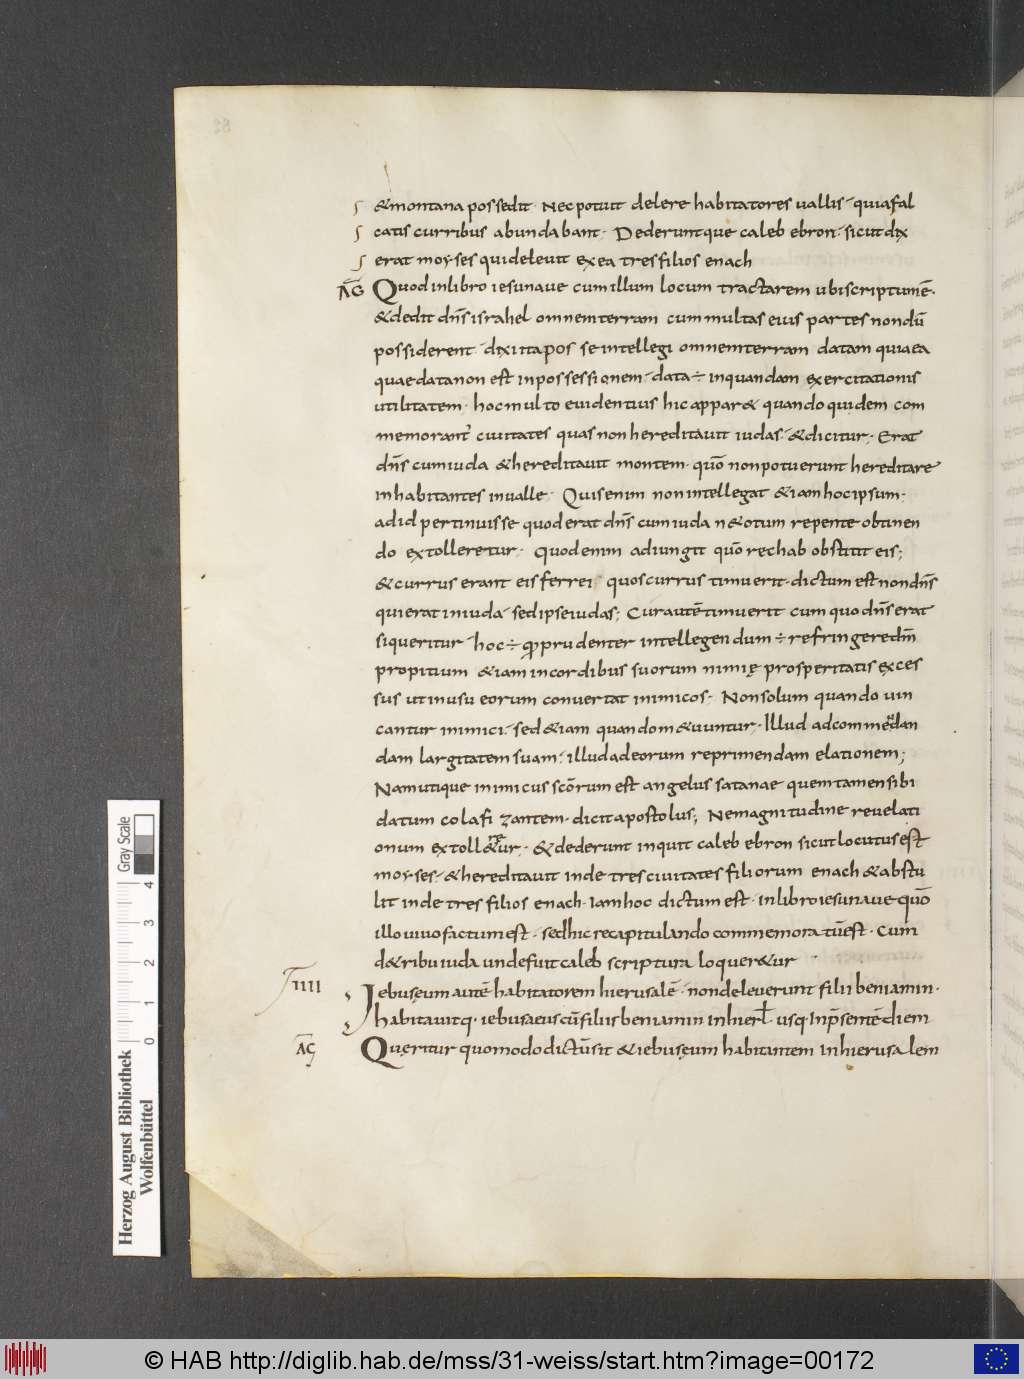 & montana possedit· Nec potuit delere habitatores uallis· quia fal
catis curribus abundabant· Dederuntque caleb ebron· sicut dix
erat moyses qui deleuit ex ea tres filios enach
AG Quod in libro iesu naue cum illum locum tractarem ubi scriptum ē·
& dedit dn̄s israhel omnem terram cum multas eius partes nondū
possiderent· dixi ita posse intellegi omnem terram datam quia ea
quae data non est in possessionem· data ÷ in quandam exercitationis
utilitatem· hoc multo euidentius hic appar& quando quidem com
memorant̄ ciuitates quas non hereditauit iudas· & dicitur· Erat
dn̄s cum iuda & hereditauit montem· quō non potuerunt hereditare
inhabitantes in ualle· Quis enim non intellegat &iam hoc ipsum·
ad id pertinuisse quod erat dn̄s cum iuda n& otum repente obtinen
do extolleretur· Quod enim adiungit quō rechab obstitit eis;
& currus erant eis ferrei· quos currus timuerit· dictum est non dn̄s
qui erat in iuda· sed ipse iudas; Cur autē timuerit cum quo dn̄s erat
si queritur hoc ÷ qđ prudenter intellegendum ÷ refringere dm̄
propitium &iam in cordibus suorum nimię prosperitatis exces
sus ut in usu eorum conuertat inimicos· Non solum quando uin
cantur inimici· sed &iam quando m&uuntur· Illud ad commendan
dam largitatem suam· illud ad eorum reprimendam elationem;
Nam utique inimicus scōrum est angelus satanae quem tamen sibi
datum colafizantem· dicit apostolus; Ne magnitudine reuelati
onum extoll&ur· & dederunt inquit caleb ebron sicut locutus est
moyses· & hereditauit inde tres ciuitates filiorum enach & abstu
lit inde tres filios enach· Iam hoc dictum est· in libro iesu naue quō
illo uiuo factum est· sed hic recapitulando commemoratū est· Cum
d& ribu iuda unde fuit caleb scriptura loquer&ur
IIII Iebusęum autē habitatorem hierusalē· non deleuerunt filii beniamin·
habitauitq· iebusaeus cū filiis beniamin in hierl̄· usq· in p̄sentē diem
AG Queritur quomodo dictū sit &iebusęum habitantem in hierusalem
Gray Scale
4 3 2 1 0
Herzog August Bibliothek
Wolfenbüttel
© HAB http://diglib.hab.de/mss/31-weiss/start.htm?image=00172